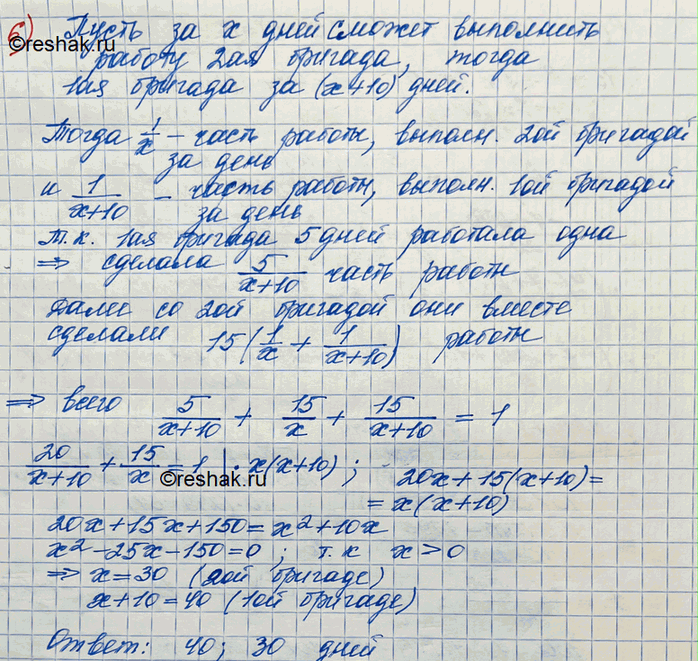 6) Пусть за x дней сможет выполнить
©reshak.ru
работу 2ая бригада, тогда
1ая бригада за (x+10) дней.
Тогда 1/x – часть работы, выполн. 2ой бригадой
за день
и 1/(x+10) – часть работы, выполн. 1ой бригадой
за день
Т.к. 1ая бригада 5 дней работала одна
⇒ сделала 5/(x+10) часть работы
Далее со 2ой бригадой они вместе
сделали 15(1/x + 1/(x+10)) работы
⇒ всего 5/(x+10) + 15/x + 15/(x+10) = 1
20/(x+10) + 15/x = 1 | · x(x+10) ; 20x+15(x+10)=
©reshak.ru
= x(x+10)
20x+15x+150=x²+10x
x²-25x-150=0 ; т.к x>0
⇒ x=30 (2ой бригаде)
x+10=40 (1ой бригаде)
Ответ: 40; 30 дней